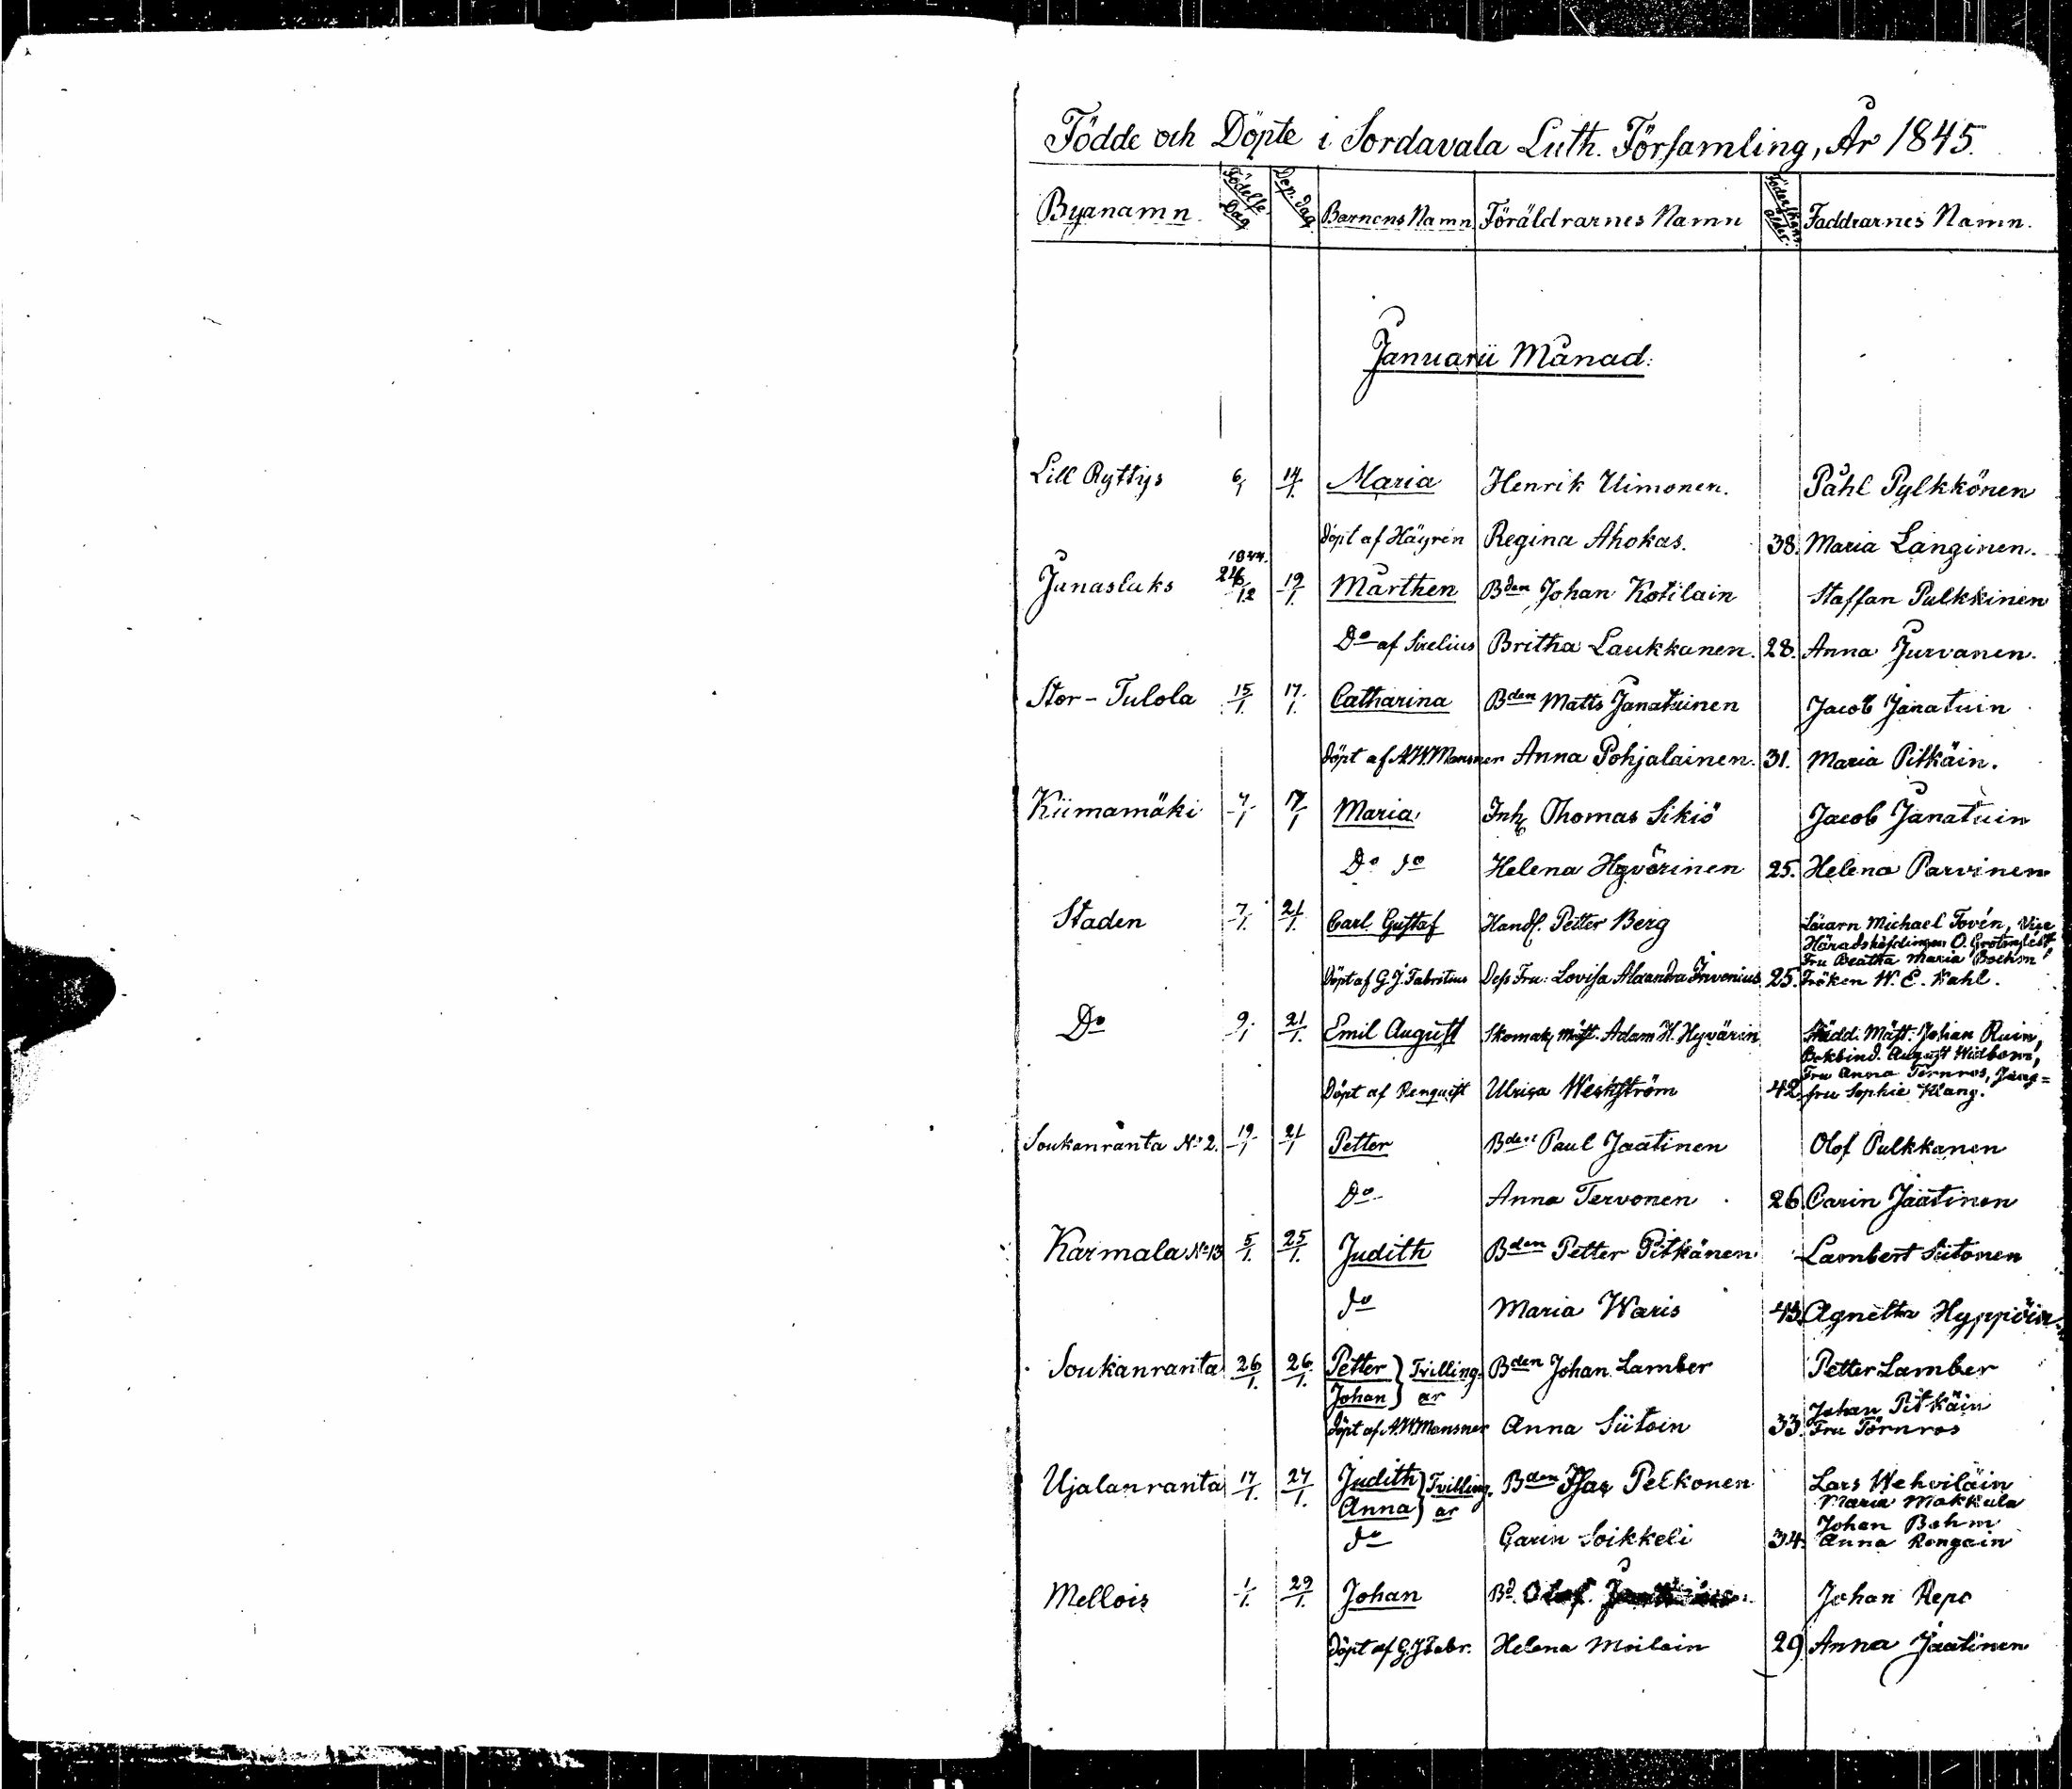 Födde och Döpte i Sordavala Luth. Församling, År 1845.
Byanamn. Födelse Dag Döp. dag Barnens Namn Föräldrarnes Namn Föderskans ålder. Faddrarnes Namn.
Januarii Månad:
Lill Ryttys 6/1 14/1. Maria Henrik Uimonen. Påhl Pylkkönen
döpt af Häyrén Regina Ahokas. 38. Maria Länginen.
1844.
Janaslaks 24/12 19/1. Mårthen Bden Johan Kotilain Staffan Pulkkinen
Do af Sirelius Britha Laukkanen. 28. Anna Jurvanen.
Stor-Tulola 15/1. 17/1. Catharina Bden Matts Janatuinen Jacob Janatuin
döpt af A.W. Mansner Anna Pohjalainen. 31. Maria Pitkäin.
Kiimamäki 7/1 17/1 Maria Inh. Thomas Sikiö Jacob Janatuin
Do do Helena Hyvärinen 25. Helena Parvinen
Staden 7/1. 21/1. Carl Gustaf Handl. Petter Berg Lärarn Michael Tovén, Vice
Häradshöfdingen O. Grotenfelt,
Fru Beatha Maria Boehm
Döpt af G.J. Fabritius Dess Fru: Lovisa Alexandra Invenius 25. Fröken W. E. Wahl.
Do 9/1 21/1. Emil August Skomak. Mäst. Adam H. Hyvärin Skädd. Mäst. Johan Ruin,
Bokbind. August Widbom,
Fru Anna Törnros, Jung=
Döpt af Renquist Ulrica Weckström 42. fru Sophie Klang.
Soukanranta No 2. 19/1 21/1 Petter Bden Paul Jaatinen Olof Pulkkanen
Do Anna Tervonen 26 Carin Jäätinen
Karmala No 13 5/1. 25/1. Judith Bden Petter Pitkänen Lambert Siitonen
do Maria Waris 43. Agnetha Hyppöin
Soukanranta 26/1. 26/1. Petter Tvilling- Bden Johan Lamber Petter Lamber
Johan ar Johan Pitkäin
döpt af A.W. Mansner Anna Siitoin 33. Fru Törnros
Ujalanranta 17/1. 27/1. Judith Tvilling- Bden Isac Pelkonen Lars Wehviläin
Anna ar Maria Makkula
Johan Bohm
do Carin Soikkeli 34. Anna Rongain
Mellois 1/1. 29/1. Johan Bd. Olof Johan Repo
Döpt af G.J. Fabr. Helena Moilain 29 Anna Jaatinen